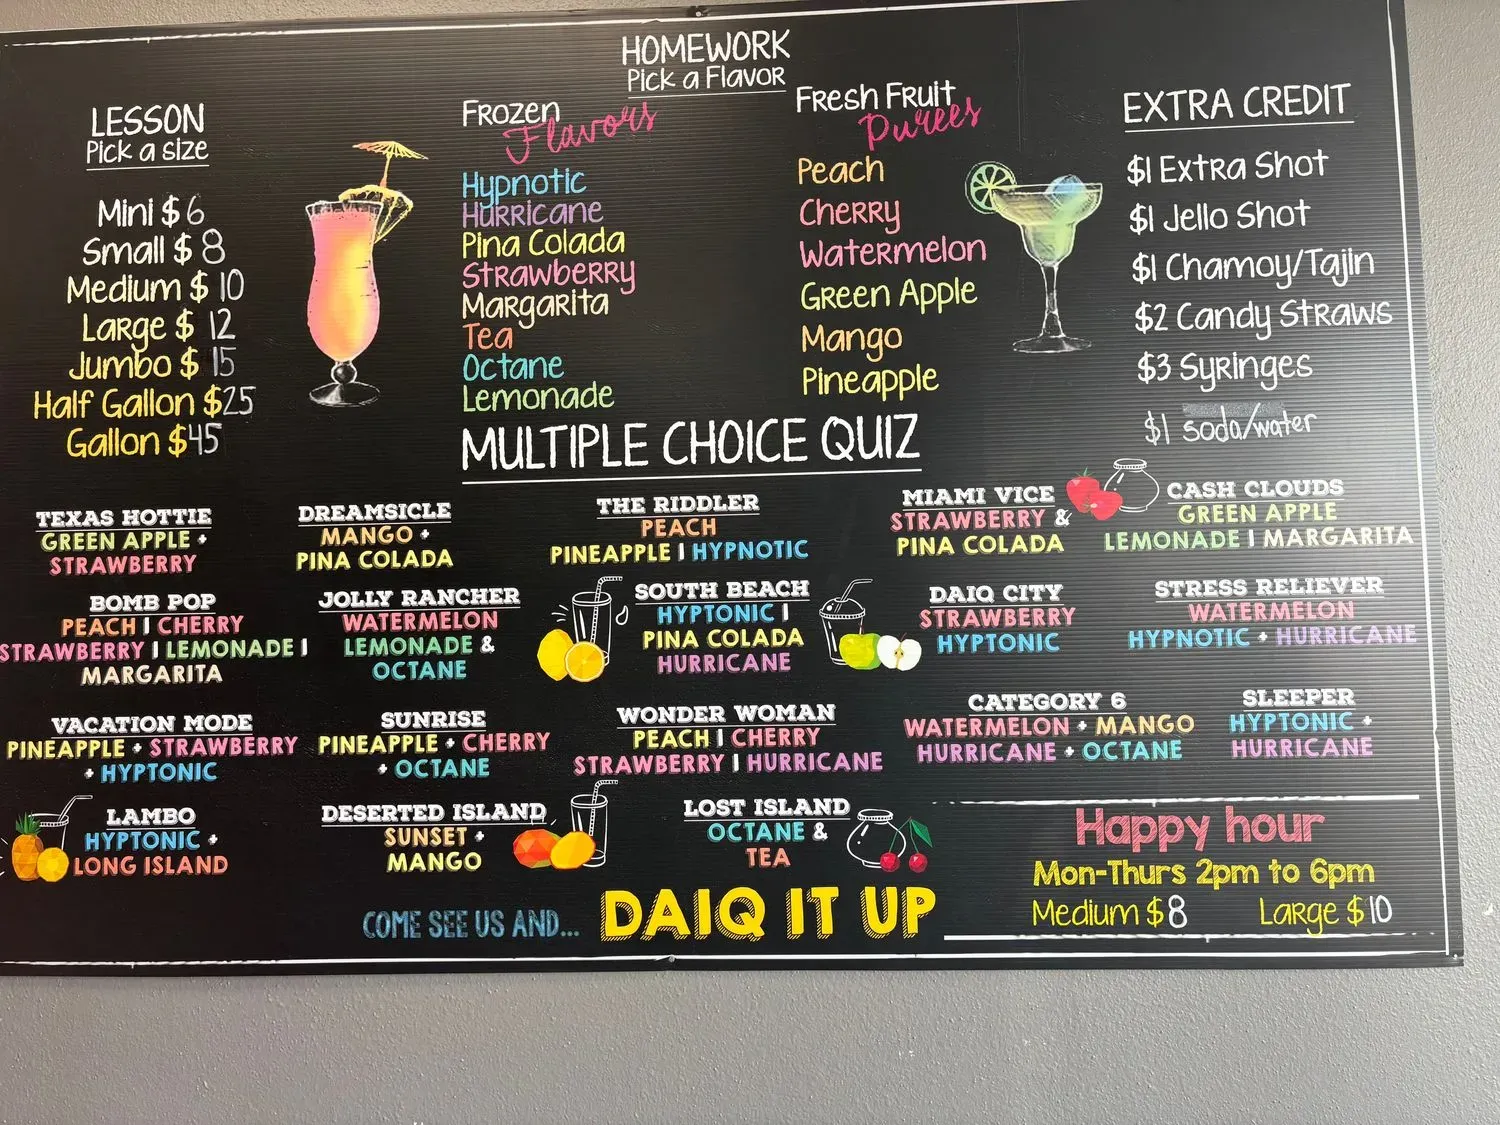 HOMEWORK
Pick a Flavor
LESSON
Pick a size
Mini $6
Small $8
Medium $10
Large $12
Jumbo $15
Half Gallon $25
Gallon $45
Frozen
Flavors
Hypnotic
Hurricane
Pina Colada
Strawberry
Margarita
Tea
Octane
Lemonade
Fresh Fruit
Purees
Peach
Cherry
Watermelon
Green Apple
Mango
Pineapple
EXTRA CREDIT
$1 Extra Shot
$1 Jello Shot
$1 Chamoy/Tajin
$2 Candy Straws
$3 Syringes
$1 soda/water
MULTIPLE CHOICE QUIZ
TEXAS HOTTIE
GREEN APPLE +
STRAWBERRY
DREAMSICLE
MANGO +
PINA COLADA
THE RIDDLER
PEACH
PINEAPPLE | HYPNOTIC
MIAMI VICE
STRAWBERRY &
PINA COLADA
CASH CLOUDS
GREEN APPLE
LEMONADE | MARGARITA
BOMB POP
PEACH | CHERRY
STRAWBERRY | LEMONADE |
MARGARITA
JOLLY RANCHER
WATERMELON
LEMONADE &
OCTANE
SOUTH BEACH
HYPTONIC |
PINA COLADA
HURRICANE
DAIQ CITY
STRAWBERRY
HYPTONIC
STRESS RELIEVER
WATERMELON
HYPNOTIC + HURRICANE
VACATION MODE
PINEAPPLE + STRAWBERRY
+ HYPTONIC
SUNRISE
PINEAPPLE + CHERRY
+ OCTANE
WONDER WOMAN
PEACH | CHERRY
STRAWBERRY | HURRICANE
CATEGORY 6
WATERMELON + MANGO
HURRICANE + OCTANE
SLEEPER
HYPTONIC +
HURRICANE
LAMBO
HYPTONIC +
LONG ISLAND
DESERTED ISLAND
SUNSET +
MANGO
LOST ISLAND
OCTANE &
TEA
Happy hour
Mon-Thurs 2pm to 6pm
Medium $8 Large $10
COME SEE US AND... DAIQ IT UP